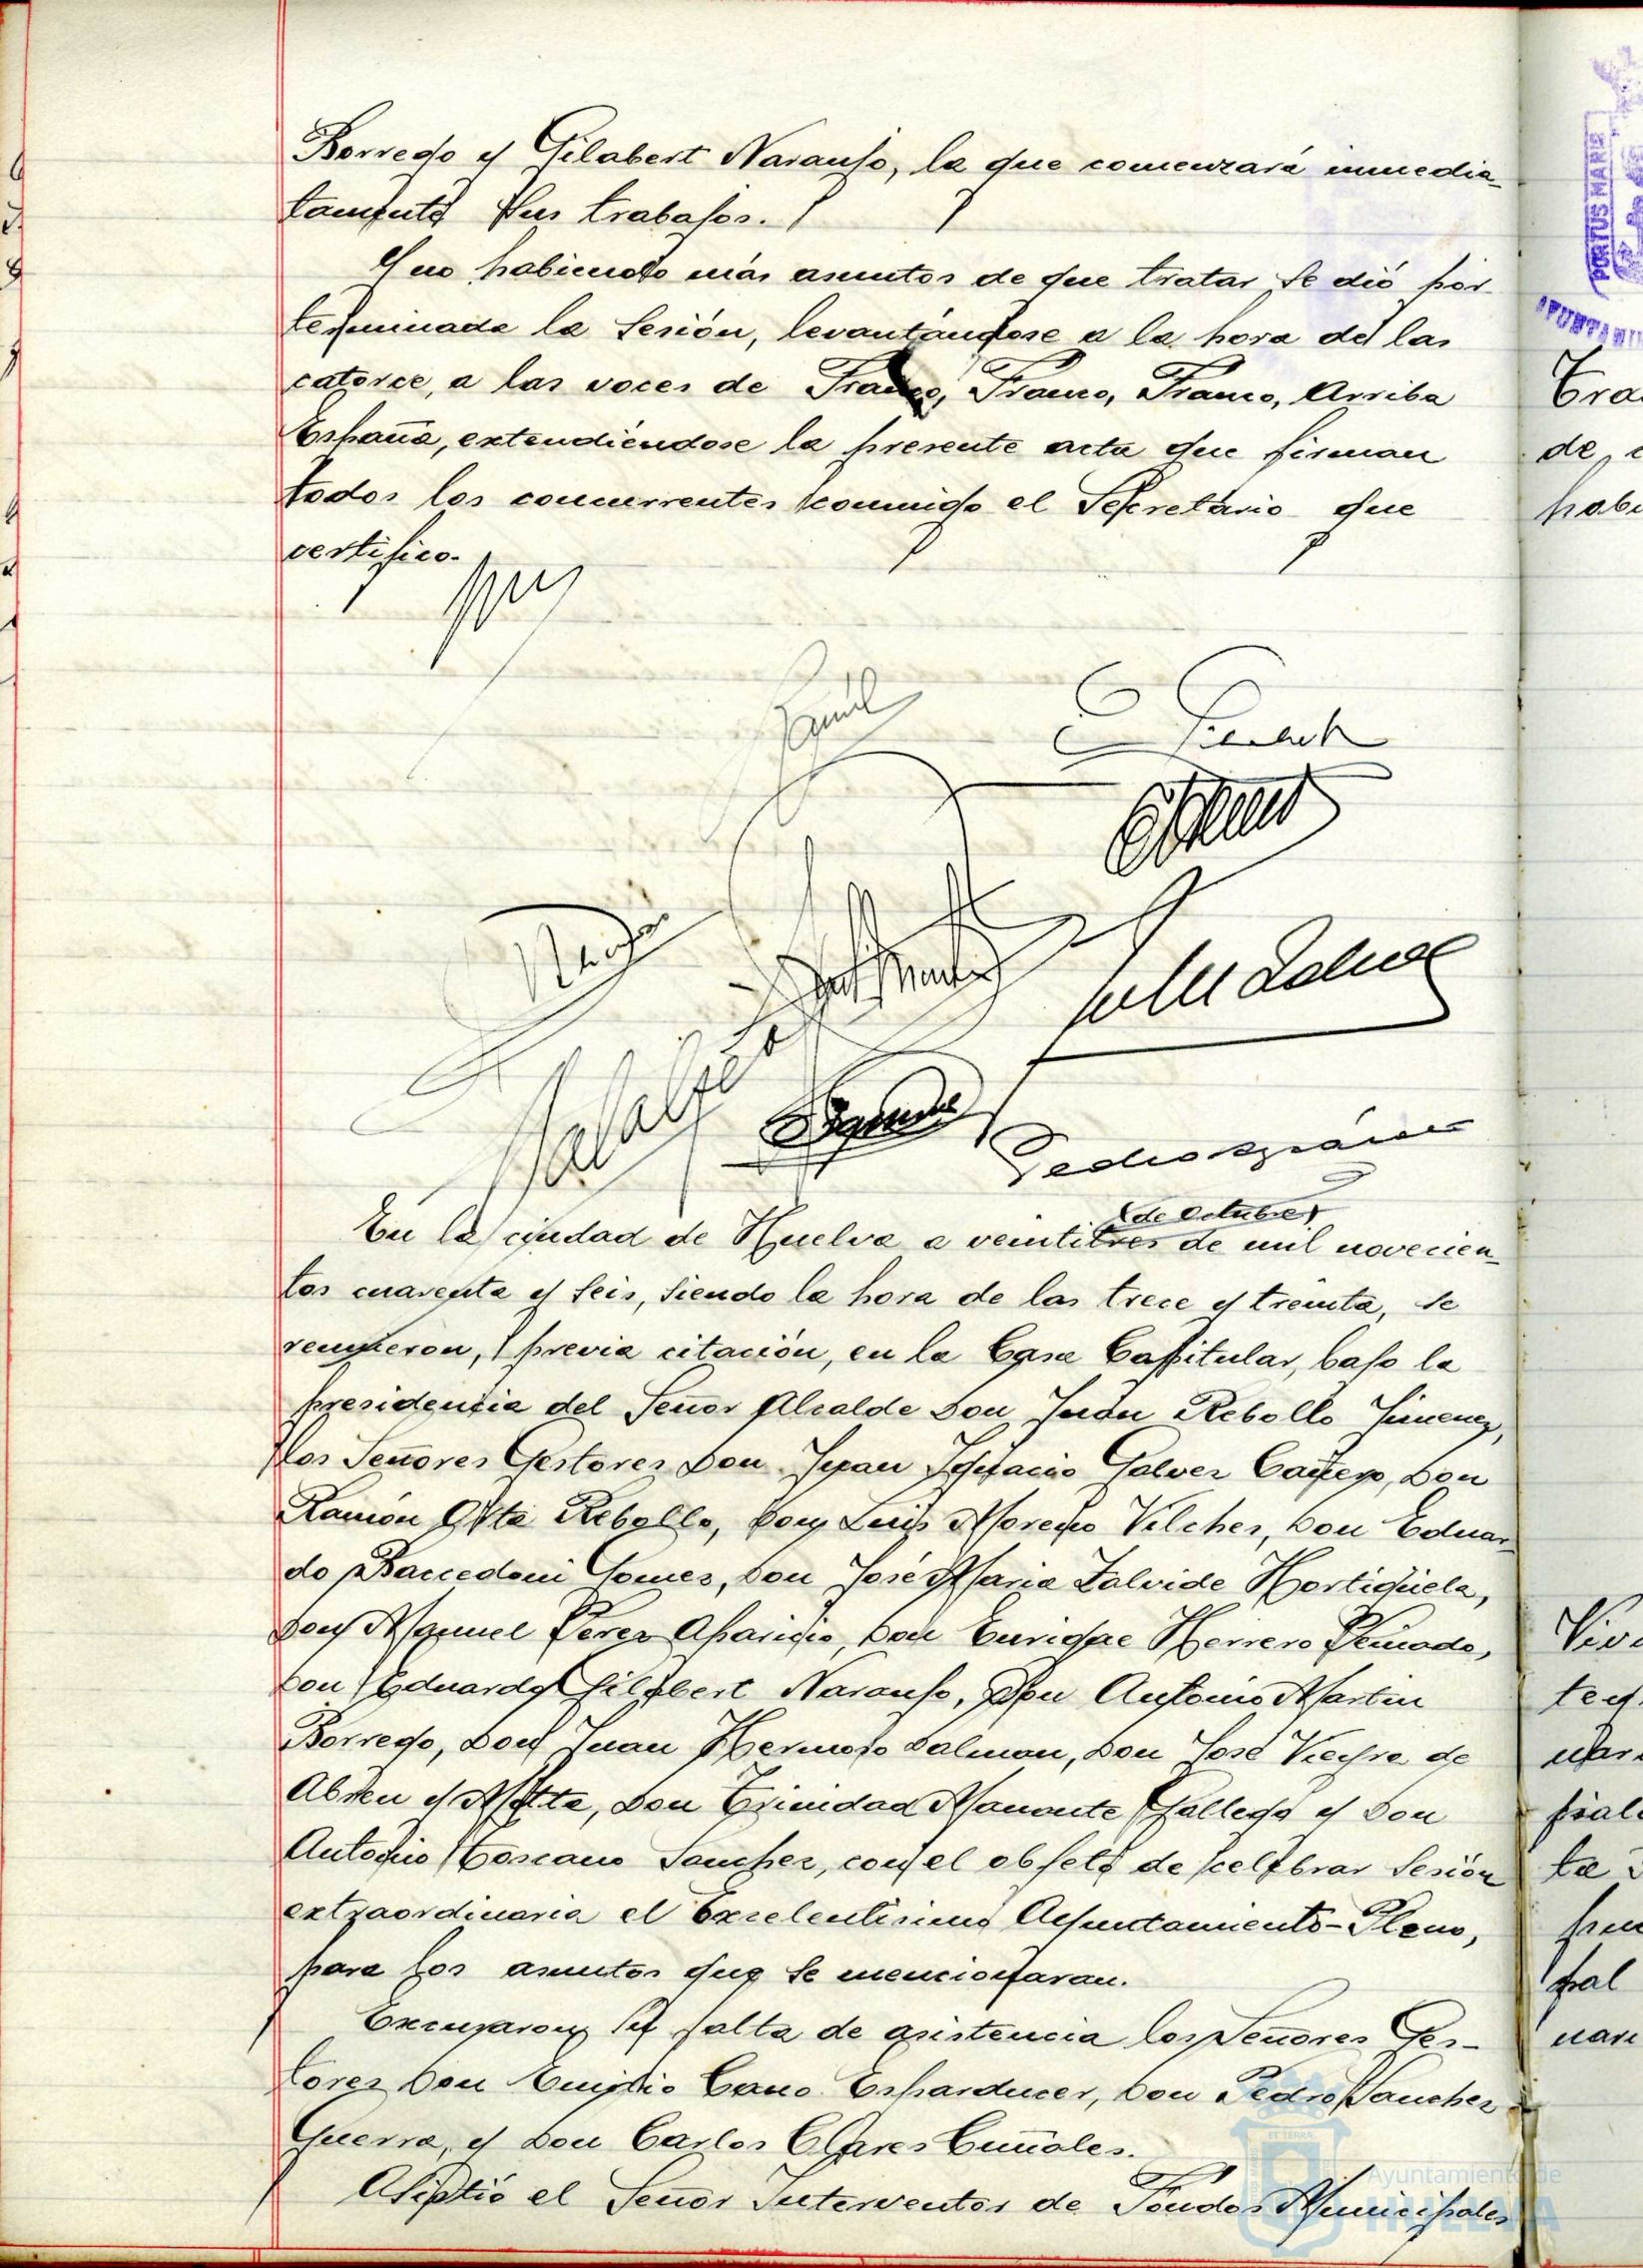 Borrego y Gilabert Naranjo, la que comenzará inmedia-
tamente sus trabajos.
Y no habiendo más asuntos de que tratar se dió por
terminada la Sesión, levantándose a la hora de las
catorce, a las voces de Franco, Franco, Franco, Arriba
España, extendiéndose la presente acta que firman
todos los concurrentes conmigo el Secretario que
certifico.
(de Octubre)
En la ciudad de Huelva a veintitres de mil novecien-
tos cuarenta y seis, siendo la hora de las trece y treinta, se
reunieron, previa citación, en la Casa Capitular, bajo la
presidencia del Señor Alcalde Don Juan Rebollo Jimenez,
los Señores Gestores Don Juan Ignacio Galvez Cañero, Don
Ramón Rebollo, Don Luis Moreno Vilchez, Don Eduar-
do Gomez, Don José Maria Zalvide Hortigüela,
Don Manuel Perez Aparicio, Don Enrique Herrero Peinado,
Don Eduardo Gilabert Naranjo, Don Antonio Martin
Borrego, Don Juan Hermoso Salmon, Don José Vieyra de
Abreu y Motta, Don Trinidad Manante Gallego y Don
Antonio Toscano Sanchez, con el objeto de celebrar Sesión
extraordinaria el Excelentisimo Ayuntamiento-Pleno,
para los asuntos que se mencionaran.
Excusaron su falta de asistencia los Señores Ges-
tores Don Emilio Cano Esparducer, Don Pedro Sanchez
Guerra, y Don Carlos Clares Cuñales.
Asistió el Señor Interventor de Fondos Municipales
PORTUS MARIS
Ayuntamiento de
HUELVA